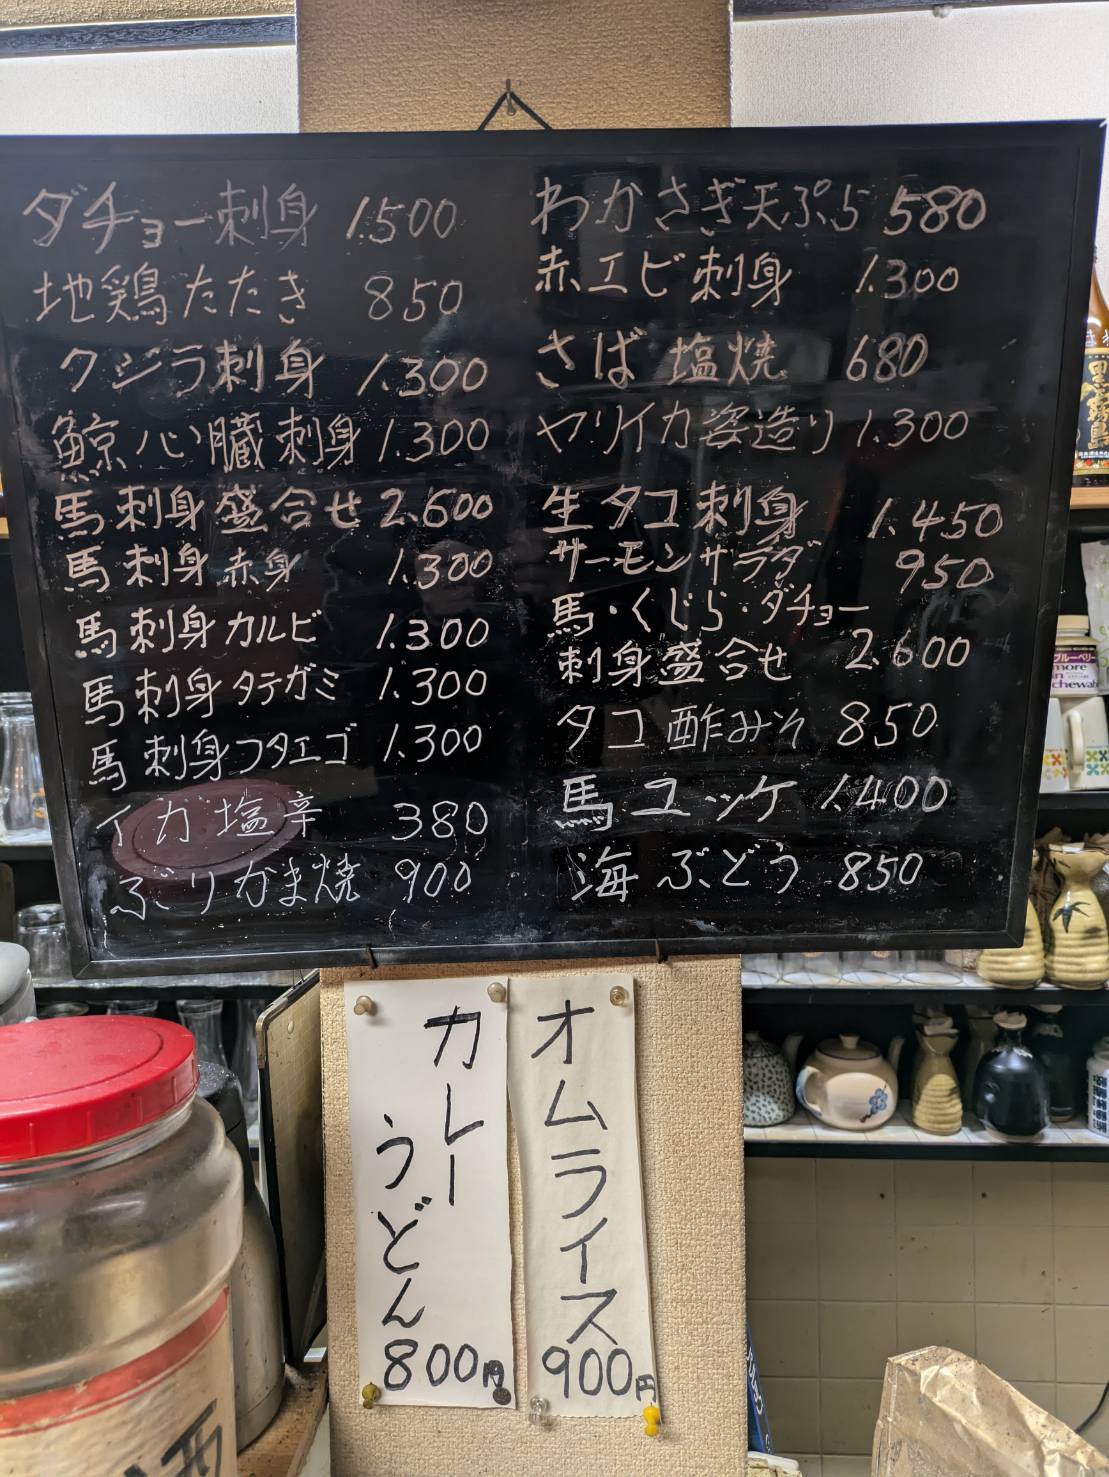 ダチョー刺身 1.500
地鶏たたき 850
クジラ刺身 1.300
鯨心臓刺身 1.300
馬刺身盛合せ 2.600
馬刺身赤身 1.300
馬刺身カルビ 1.300
馬刺身タテガミ 1.300
馬刺身フタエゴ 1.300
イカ塩辛 380
ぶりかま焼 900
わかさぎ天ぷら 580
赤エビ刺身 1.300
さば塩焼 680
ヤリイカ姿造り 1.300
生タコ刺身 1.450
サーモンサラダ 950
馬・くじら・ダチョー
刺身盛合せ 2.600
タコ酢みそ 850
馬ユッケ 1.400
海ぶどう 850
オムライス
900円
カレー
うどん
800円
ブルーベリー
more
in
chewah
酒